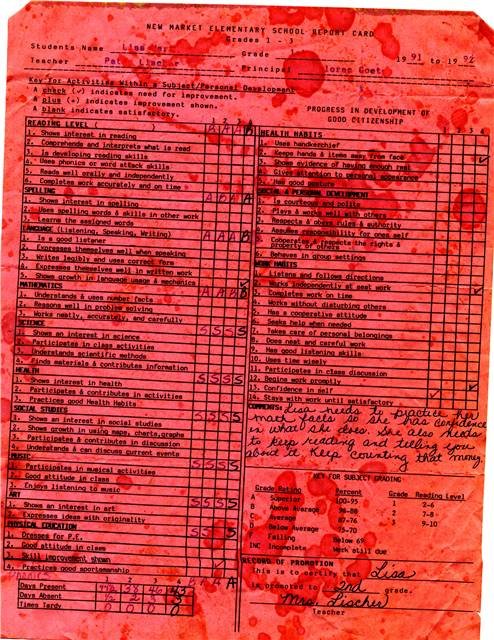 NEW MARKET ELEMENTARY SCHOOL REPORT CARD
Grades 1 - 3
Students Name Lisa
Grade
Teacher Pat Lischer Principal
1991 to 1992
Key for Activities Within a Subject/Personal Development
A check (✓) indicates need for improvement.
A plus (+) indicates improvement shown.
A blank indicates satisfactory.
PROGRESS IN DEVELOPMENT OF
GOOD CITIZENSHIP
1 2 3 4
READING LEVEL ( ) B A A B
1. Shows interest in reading
2. Comprehends and interprets what is read
3. Is developing reading skills
4. Uses phonics or word attack skills
5. Reads well orally and independently
6. Completes work accurately and on time
SPELLING
1. Shows interest in spelling
2. Uses spelling words & skills in other work
3. Learns the assigned words
LANGUAGE (Listening, Speaking, Writing) A A A B
1. Is a good listener
2. Expresses themselves well when speaking
3. Writes legibly and uses correct form
4. Expresses themselves well in written work
5. Shows growth in language usage & mechanics
MATHEMATICS
1. Understands & uses number facts
2. Reasons well in problem solving
3. Works neatly, accurately, and carefully
SCIENCE S S S S
1. Shows an interest in science
2. Participates in class activities
3. Understands scientific methods
4. Finds materials & contributes information
HEALTH S S S S
1. Shows interest in health
2. Participates & contributes in activities
3. Practices good Health Habits
SOCIAL STUDIES S S S S
1. Shows an interest in social studies
2. Shows growth in using maps, charts, graphs
3. Participates & contributes in discussion
4. Understands & can discuss current events
MUSIC S S S S
1. Participates in musical activities
2. Good attitude in class
3. Enjoys listening to music
ART S S S S
1. Shows an interest in art
2. Expresses ideas with originality
PHYSICAL EDUCATION
1. Dresses for P.E.
2. Good attitude in class
3. Skill improvement shown
4. Practices good sportsmanship
1 2 3 4
Days Present 38 46 43
Days Absent
Times Tardy 0 0 0 0
1 2 3 4
HEALTH HABITS
1. Uses handkerchief
2. Keeps hands & items away from face
3. Shows evidence of having enough rest
4. Gives attention to personal appearance
5. Has good posture
SOCIAL & PERSONAL DEVELOPMENT
1. Is courteous and polite
2. Plays & works well with others
3. Respects & obeys rules & authority
4. Assumes responsibility for ones self
5. Cooperates & respects the rights &
property of others
6. Behaves in group settings
WORK HABITS
1. Listens and follows directions
2. Works independently at seat work
3. Completes work on time
Works without disturbing others
Has a cooperative attitude
Seeks help when needed
Takes care of personal belongings
8. Does neat and careful work
9. Has good listening skills
10. Uses time wisely
11. Participates in class discussion
12. Begins work promptly
13. Confidence in self
14. Stays with work until satisfactory
COMMENTS: Lisa needs to practice her
math facts so she has confidence
in what she does. She also needs
to keep reading and telling you
about it. Keep counting that money.
KEY FOR SUBJECT GRADING
Grade Rating Percent Grade Reading Level
A Superior 100-95 1 2-6
B Above Average 94-88 2 7-8
C Average 87-76 3 9-10
D Below Average 75-70
F Failing Below 69
INC Incomplete Work still due
RECORD OF PROMOTION
This is to certify that Lisa
is promoted to 2nd grade.
Mrs. Lischer
Teacher